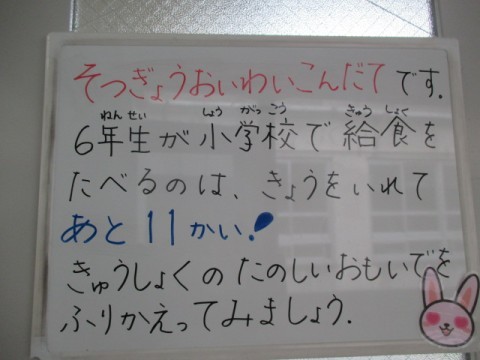 そつぎょうおいわいこんだてです.
ねん せい しょう がっ こう きゅう しょく
6年生が小学校で給食を
たべるのは、きょうをいれて
あと11かい!
きゅうしょくのたのしいおもいでを
ふりかえってみましょう.